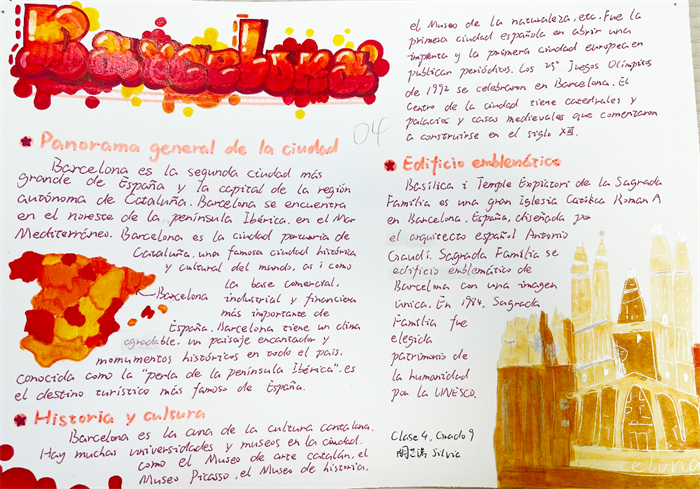 Barcelona
Panorama general de la ciudad
Barcelona es la segunda ciudad más
grande de España y la capital de la región
autónoma de Cataluña. Barcelona se encuentra
en el noreste de la península Ibérica, en el Mar
Mediterráneo. Barcelona es la ciudad portuaria de
Cataluña, una famosa ciudad histórica
y cultural del mundo, as i como
la base comercial,
industrial y financiera
más importante de
España. Barcelona tiene un clima
agradable, un paisaje encantador y
monumentos históricos en todo el país.
conocida como la "perla de la península Ibérica". es
el destino turístico más famoso de España.
Barcelona
Historia y cultura
Barcelona es la cuna de la cultura catalana.
Hay muchas universidades y museos en la ciudad.
como el Museo de arte catalán, el
Museo Picasso, el Museo de historia,
el Museo de la naturaleza, etc. Fue la
primera ciudad española en abrir una
imprenta y la primera ciudad europea en
publicar periódicos. Los 25º Juegos Olímpicos
de 1992 se celebraron en Barcelona. El
Centro de la ciudad tiene catedrales y
palacios y casas medievales que comenzaron
a construirse en el siglo XIII.
04
Edificio emblemático
Basílica i Temple Expiatori de la Sagrada
Família es una gran iglesia Católica Romana
en Barcelona, España, diseñada por
el arquitecto español Antonio
Gaudí. Sagrada Família se
edificio emblemático de
Barcelona con una imagen
única. En 1984, Sagrada
Família fue
elegida
patrimonio de
la humanidad
por la UNESCO.
Clase 4, Grado 9
Silvia
celona